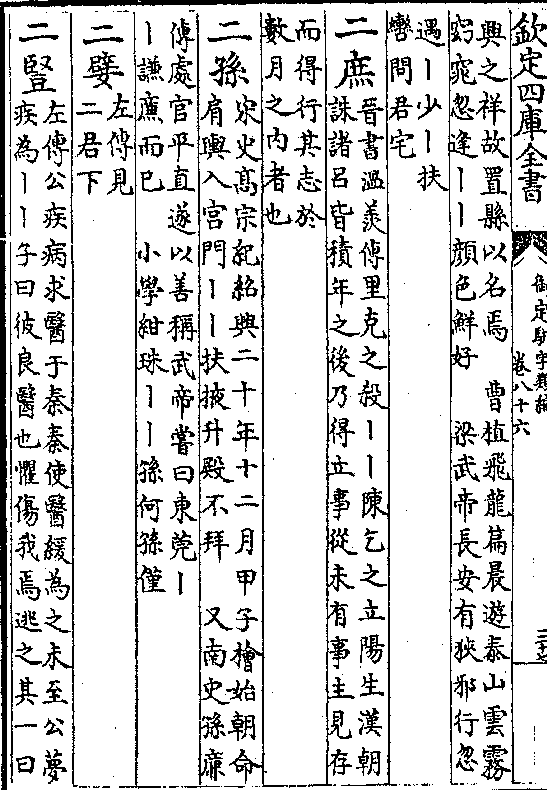 欽定四庫全書
御定駢字類編
卷八十六
興之祥故置縣以名焉　曹植飛龍篇晨遊泰山雲霧
窈窕忽逢丨丨顔色鮮好　梁武帝長安有狹邪行忽
遇丨少丨扶
轡問君宅
二庶
晉書溫羨傳里克之殺丨丨陳乞之立陽生漢朝
誅諸呂皆積年之後乃得立事從未有事主見存
而得行其志於
數月之内者也
二孫
宋史髙宗紀紹興二十年十二月甲子檜始朝命
肩輿入宮門丨丨扶掖升殿不拜　又南史孫廉
傳處官平直遂以善稱武帝嘗曰東莞丨
丨謙廉而已　小學紺珠丨丨孫何孫僅
二嬖
左傳見
二君下
二豎
左傳公疾病求醫于秦秦使醫緩為之未至公夢
疾為丨丨子曰彼良醫也懼傷我焉逃之其一曰